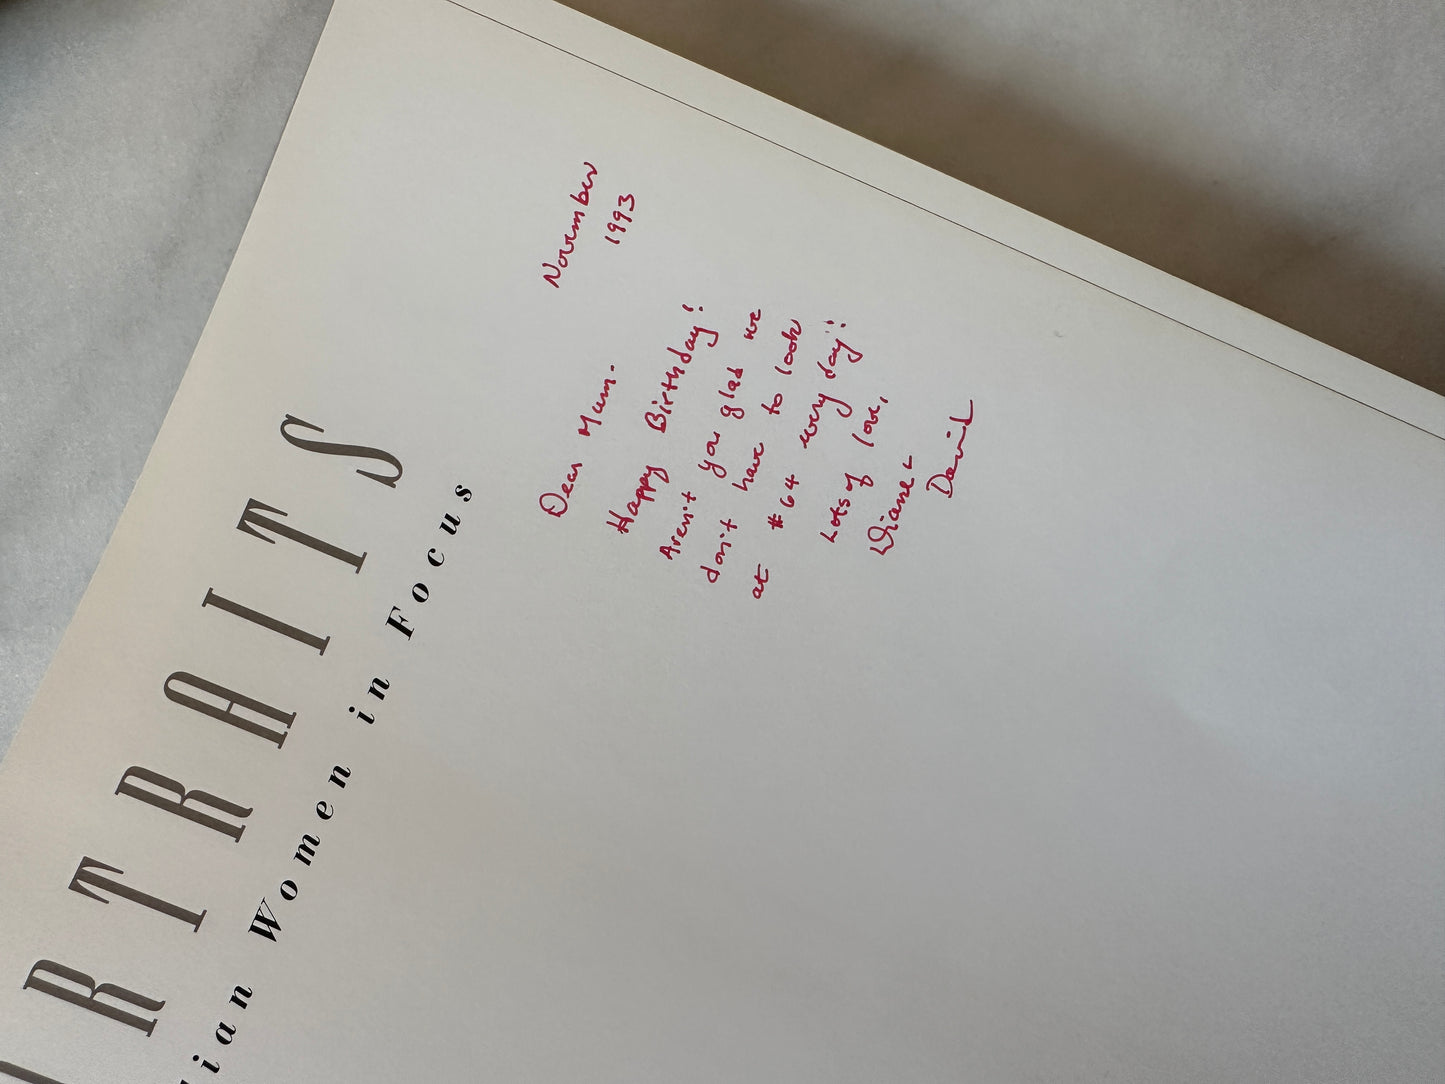 November
1993
Dear Mum.
Happy Birthday!
Aren't you glad we
don't have to look
at #64 every day!!
Lots of love,
Diane +
David
RTRAITS
dian Women in Focus